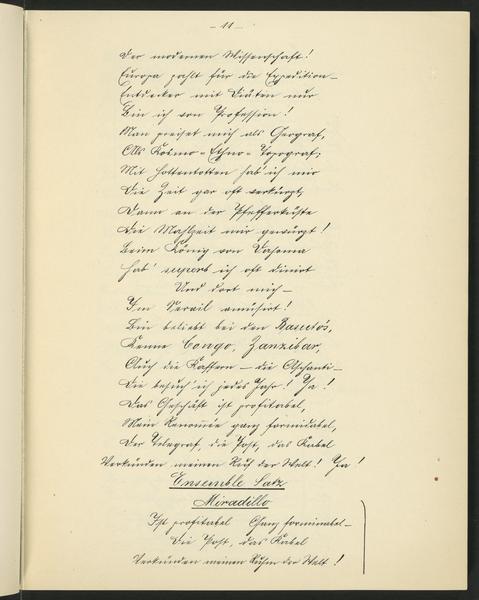 - 11 -
Der modernen Wissenschaft!
Europa zahlt für die Expedition –
Entdecker mit Diäten nur
Bin ich von Profession!
Man preiset mich als Geograf,
Als Kosmo-Ethno-Topograf;
Mit Hottentotten hab' ich mir
Die Zeit gar oft verkürzt,
Dann an der Pfefferküste
Die Mahlzeit mir gewürzt!
Beim König von Dahome
Hab' superb ich oft dinirt
Und dort mich –
Im Serail amüsirt!
Bin beliebt bei den Basuto's,
Kenne Congo, Zanzibar,
Auch die Kaffern – die Aschanti –
Die besuch' ich jedes Jahr! Ja!
Das Geschäft ist profitabel,
Mein Renomée ganz formidabel,
Der Telegraf, die Post, das Kabel
Verkünden meinen Ruf der Welt! Ja!
Ensemble Satz
Miradillo
Ist profitabel Ganz forminabel –
Die Post, das Kabel
Verkünden meinen Ruhm der Welt!